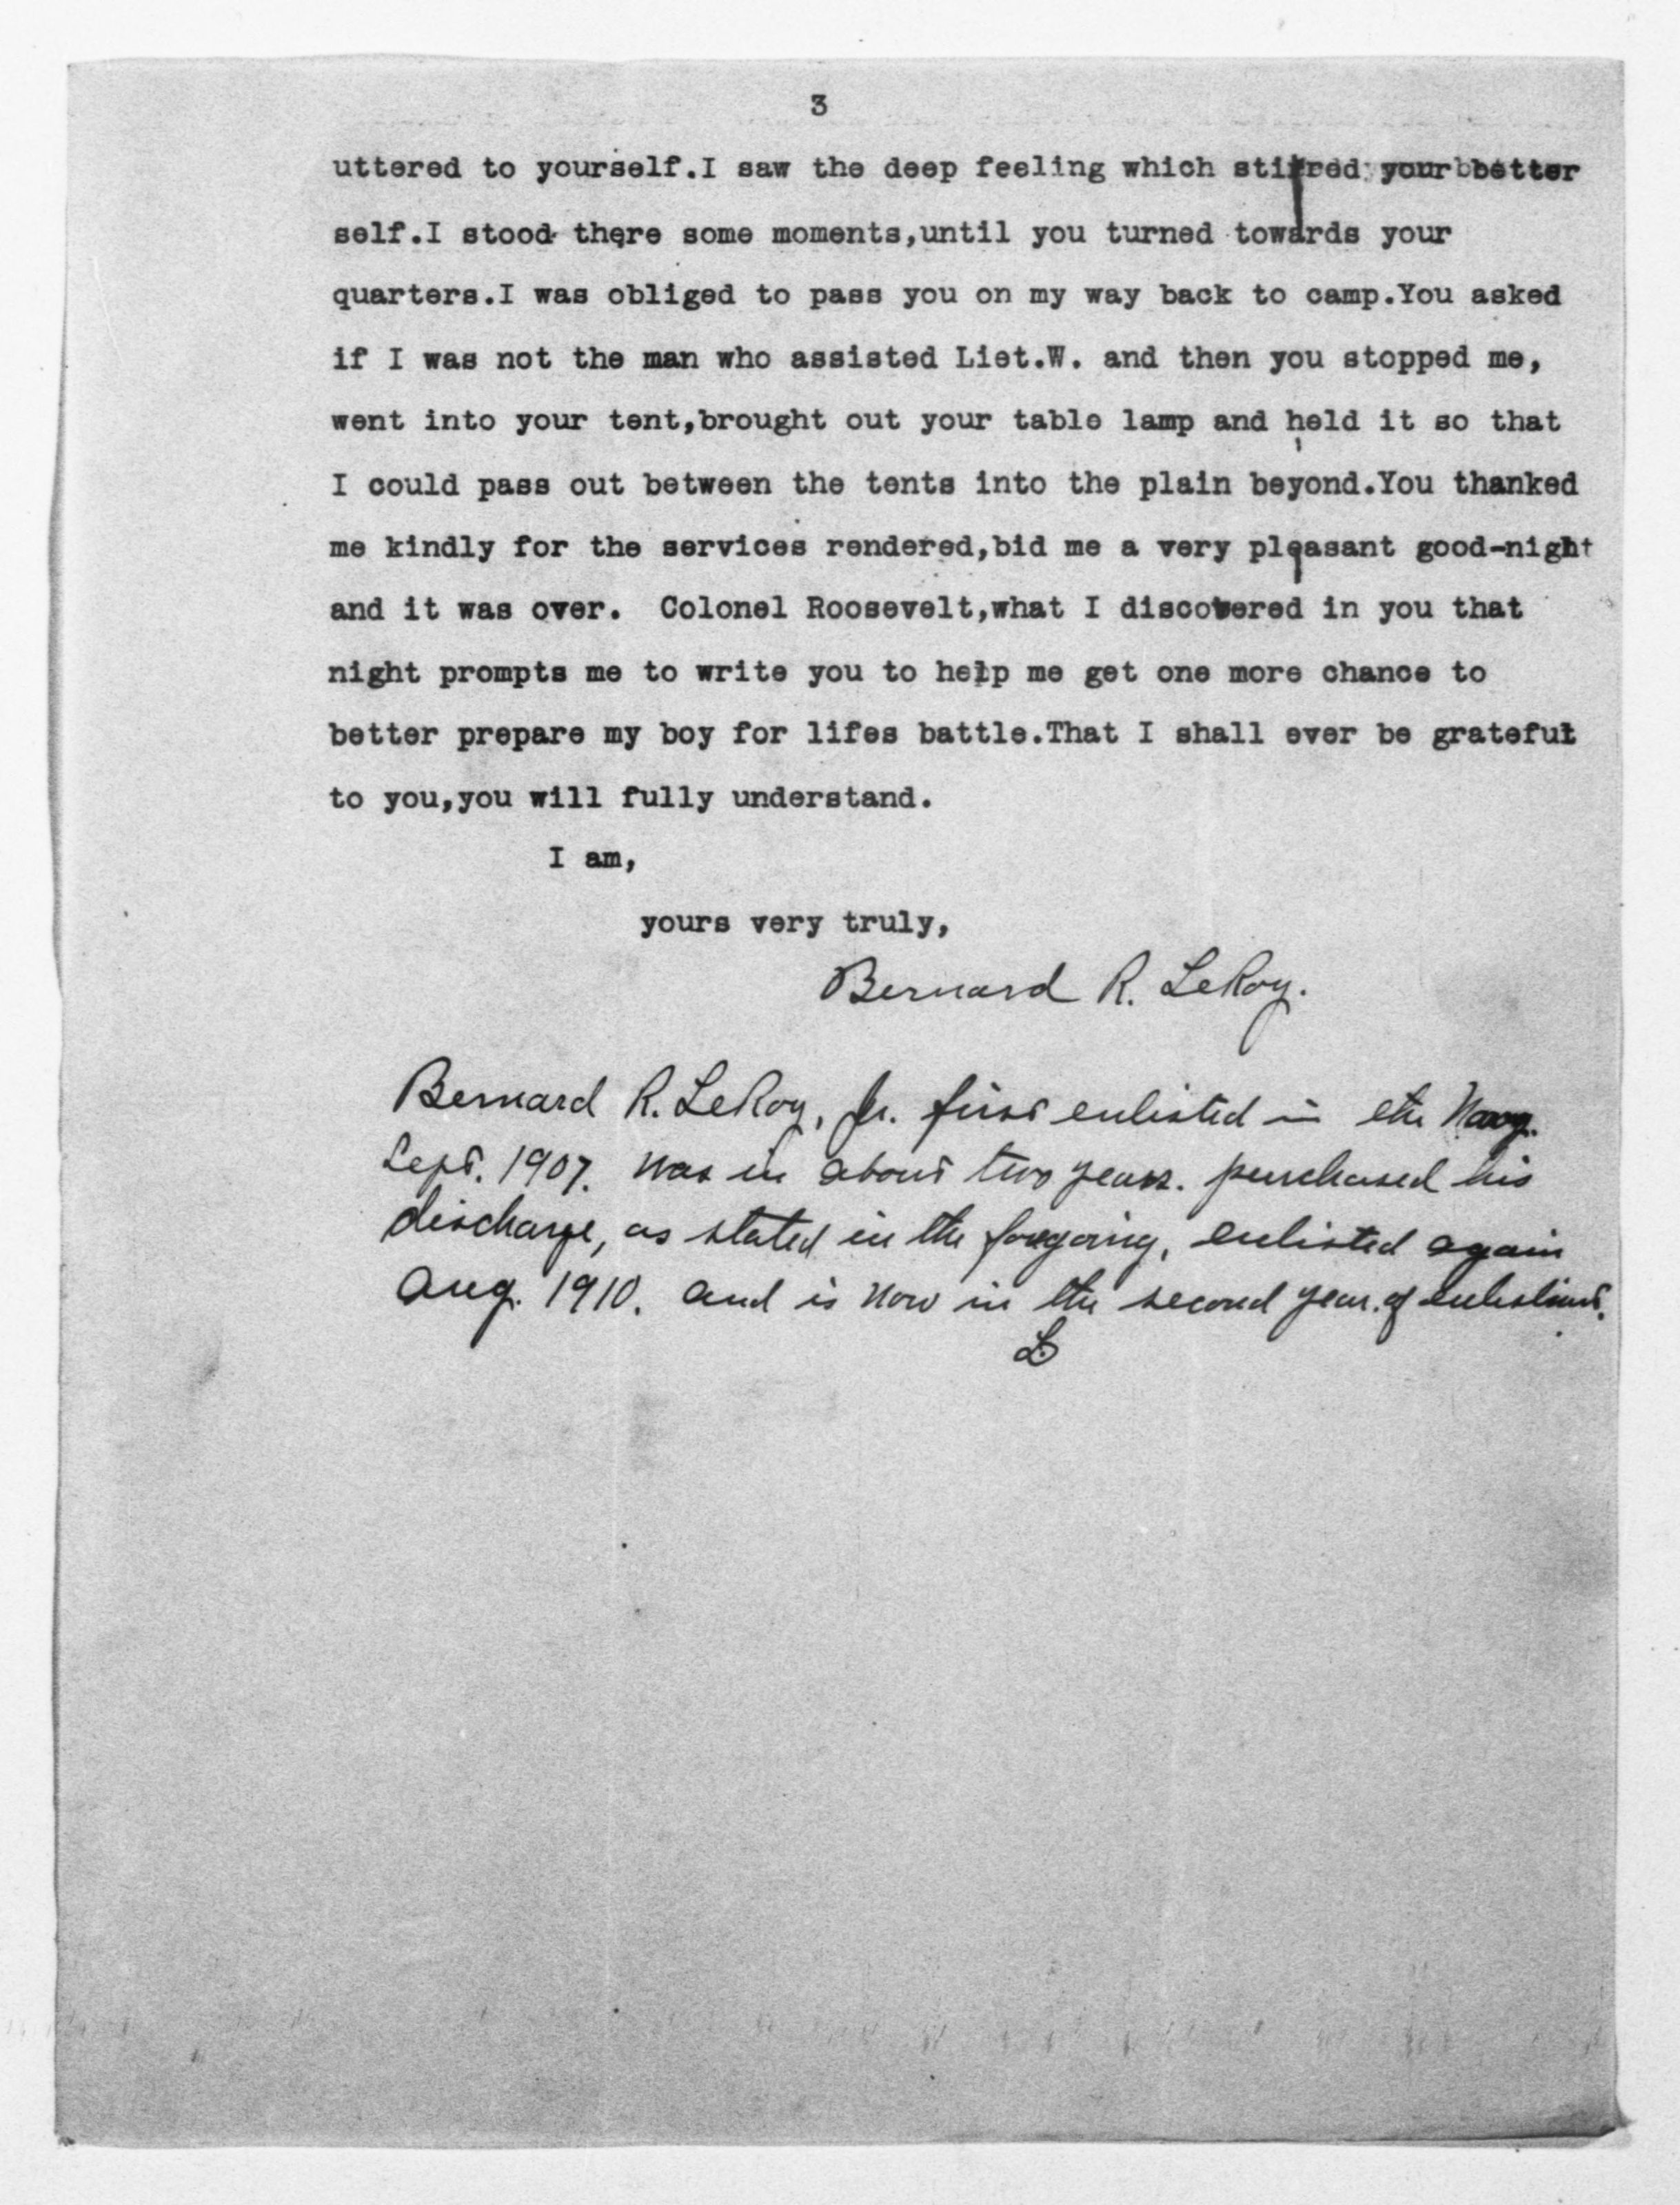 3
uttered to yourself.I saw the deep feeling which stirred your bbetter
self.I stood there some moments,until you turned towards your
quarters.I was obliged to pass you on my way back to camp.You asked
if I was not the man who assisted Liet.W. and then you stopped me,
went into your tent,brought out your table lamp and held it so that
I could pass out between the tents into the plain beyond.You thanked
me kindly for the services rendered,bid me a very pleasant good-night
and it was over. Colonel Roosevelt,what I discovered in you that
night prompts me to write you to help me get one more chance to
better prepare my boy for lifes battle.That I shall ever be grateful
to you,you will fully understand.
I am,
yours very truly,
Bernard R. LeRoy.
Bernard R. LeRoy, Jr. first enlisted in the Navy.
Sept. 1907. was in about two years. purchased his
discharge, as stated in the forgoing, enlisted again
Aug. 1910. and is now in the second year of enlistment.
L